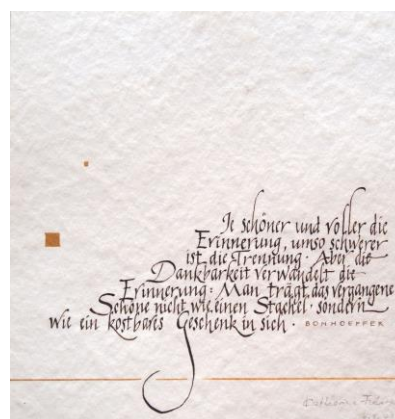 Je schöner und voller die
Erinnerung, umso schwerer
ist die Trennung. Aber die
Dankbarkeit verwandelt die
Erinnerung: Man trägt das vergangene
Schöne nicht wie einen Stachel, sondern
wie ein kostbares Geschenk in sich. BONHOEFFER